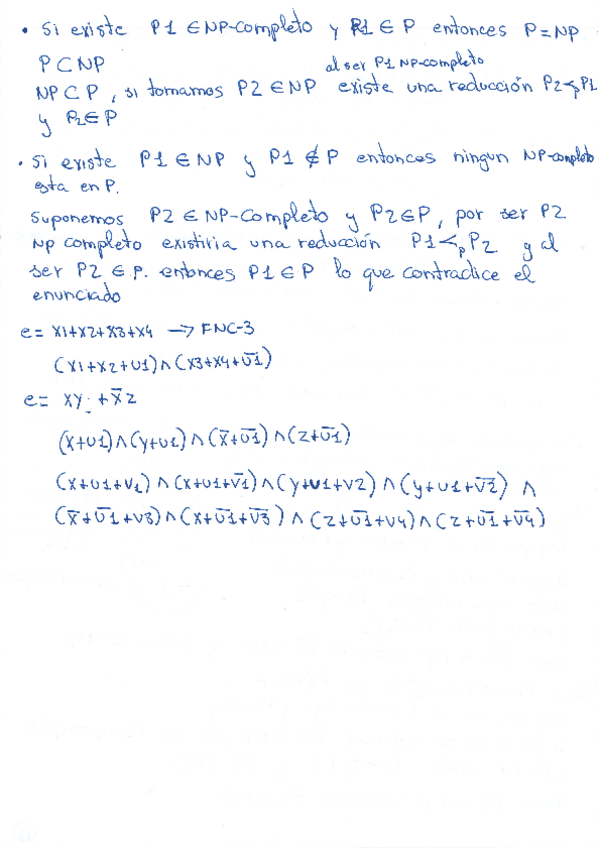 • Si existe P1 ∈ NP-completo y P1 ∈ P entonces P=NP
P⊂NP al ser P1 NP-completo
NP⊂P, si tomamos P2 ∈ NP existe una reducción P2<ₚP1
y P2∈P
• Si existe P1 ∈ NP y P1 ∉ P entonces ningun NP-completo
esta en P.
Suponemos P2 ∈ NP-Completo y P2∈P, por ser P2
Np completo existiria una reducción P1<ₚP2 y al
ser P2 ∈ P. entonces P1∈P lo que contradice el
enunciado
e= x1+x2+x3+x4 → FNC-3
(x1+x2+u1)∧(x3+x4+u̅1̅)
e= xy + x̅z
(x+u1)∧(y+u1)∧(x̅+u̅1̅)∧(z+u̅1̅)
(x+u1+v1)∧(x+u1+v̅1̅)∧(y+u1+v2)∧(y+u1+v̅2̅) ∧
(x̅+u̅1̅+v3)∧(x+u̅1̅+v̅3̅)∧(z+u̅1̅+v4)∧(z+u̅1̅+v̅4̅)